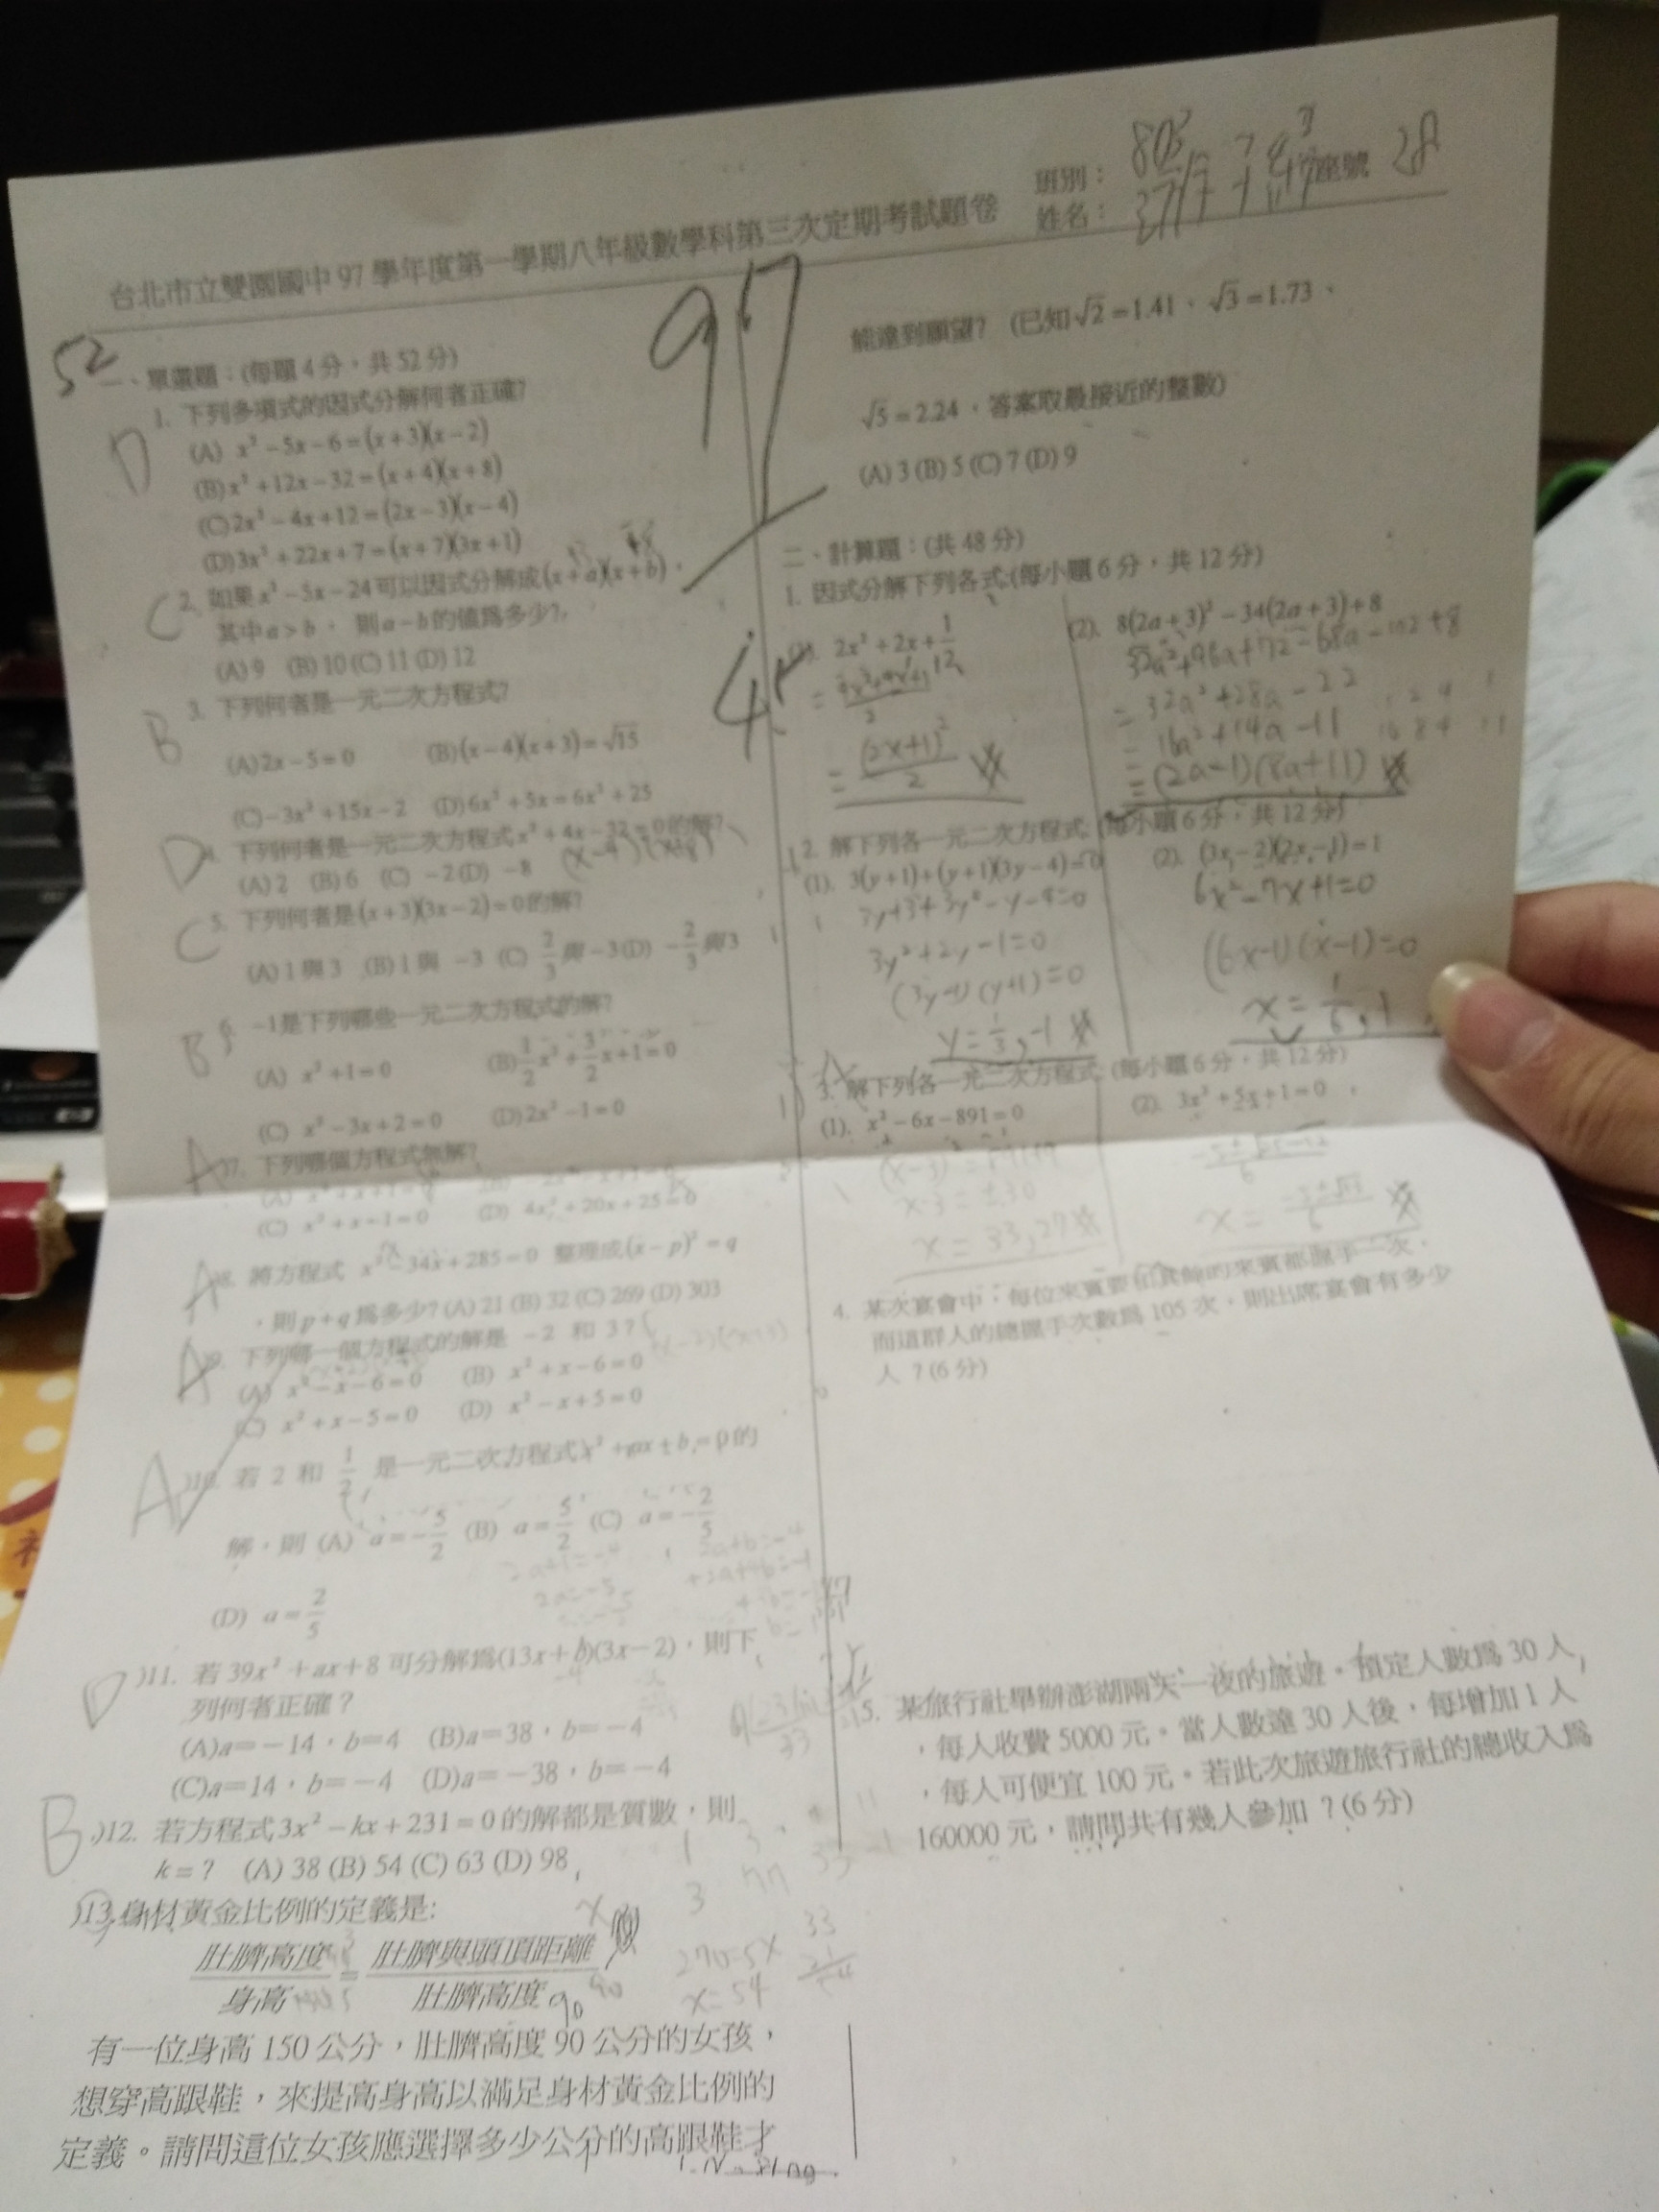 台北市立雙園國中 97 學年度第一學期八年級數學科第三次定期考試題卷
班別： 803
姓名： 座號 28
97
52
一、單選題：(每題 4 分，共 52 分)
D 1. 下列多項式的因式分解何者正確?
(A) x²－5x－6＝(x＋3)(x－2)
(B) x²＋12x－32＝(x＋4)(x＋8)
(C) 2x²－4x＋12＝(2x－3)(x－4)
(D) 3x²＋22x＋7＝(x＋7)(3x＋1)
C 2. 如果 x²－5x－24 可以因式分解成 (x＋a)(x＋b)，
其中 a＞b， 則 a－b 的值為多少?
(A) 9 (B) 10 (C) 11 (D) 12
B 3. 下列何者是一元二次方程式?
(A) 2x－5＝0 (B) (x－4)(x＋3)＝√15
(C) －3x²＋15x－2 (D) 6x²＋5x＝6x²＋25
D 4. 下列何者是一元二次方程式 x²＋4x－32＝0 的解?
(A) 2 (B) 6 (C) －2 (D) －8 (x－4)(x+8)
C 5. 下列何者是 (x＋3)(3x－2)＝0 的解?
(A) 1 與 3 (B) 1 與 －3 (C) 2/3 與 －3 (D) －2/3 與 3
B 6. －1 是下列哪些一元二次方程式的解?
(A) x²＋1＝0 (B) 1/2 x²＋3/2 x＋1＝0
(C) x²－3x＋2＝0 (D) 2x²－1＝0
A 7. 下列哪個方程式無解?
(A) x²＋x＋1＝0
(C) x²＋x－1＝0 (D) 4x²＋20x＋25＝0
A 8. 將方程式 x²－34x＋285＝0 整理成 (x－p)²＝q
，則 p＋q 為多少? (A) 21 (B) 32 (C) 269 (D) 303
A 9. 下列哪一個方程式的解是 －2 和 3？
(A) x²－x－6＝0 (B) x²＋x－6＝0
(C) x²＋x－5＝0 (D) x²－x＋5＝0
A )10. 若 2 和 1/2 是一元二次方程式 x²＋ax＋b＝0 的
解，則 (A) a＝－5/2 (B) a＝5/2 (C) a＝－2/5
(D) a＝2/5
D )11. 若 39x²＋ax＋8 可分解為(13x＋b)(3x－2)，則下
列何者正確？
(A)a＝－14，b＝4 (B)a＝38，b＝－4
(C)a＝14，b＝－4 (D)a＝－38，b＝－4
B )12. 若方程式 3x²－kx＋231＝0 的解都是質數，則
k＝？ (A) 38 (B) 54 (C) 63 (D) 98
)13. 身材黃金比例的定義是:
肚臍高度/身高 = 肚臍與頭頂距離/肚臍高度
90
270=5x
x=54
有一位身高 150 公分，肚臍高度 90 公分的女孩，
想穿高跟鞋，來提高身高以滿足身材黃金比例的
定義。請問這位女孩應選擇多少公分的高跟鞋才
能達到願望？ (已知 √2＝1.41、√3＝1.73、
√5＝2.24，答案取最接近的整數)
(A) 3 (B) 5 (C) 7 (D) 9
二、計算題：(共 48 分)
1. 因式分解下列各式:(每小題 6 分，共 12 分)
(1). 2x²＋2x＋1/2
= (4x²+4x+1)/2
= (2x+1)²/2
(2). 8(2a＋3)²－34(2a＋3)＋8
32a²+96a+72－68a－102+8
= 32a²+28a－22
= 16a²+14a－11
= (2a－1)(8a+11)
2. 解下列各一元二次方程式: (每小題 6 分，共 12 分)
(1). 3(y＋1)＋(y＋1)(3y－4)＝0
3y+3+3y²－y－4=0
3y²+2y－1=0
(3y－1)(y+1)=0
y=1/3,－1
(2). (3x－2)(2x－1)＝1
6x²－7x+1=0
(6x－1)(x－1)=0
x=1/6,1
3. 解下列各一元二次方程式: (每小題 6 分，共 12 分)
(1). x²－6x－891＝0
x－3=±30
x=33,27
(2). 3x²＋5x＋1＝0
x=(－5±√13)/6
4. 某次宴會中，每位來賓要和其餘的來賓都握手一次，
而這群人的總握手次數為 105 次，則出席宴會有多少
人？(6 分)
5. 某旅行社舉辦澎湖兩天一夜的旅遊。預定人數為 30 人
，每人收費 5000 元。當人數達 30 人後，每增加 1 人
，每人可便宜 100 元。若此次旅遊旅行社的總收入為
160000 元，請問共有幾人參加？(6 分)